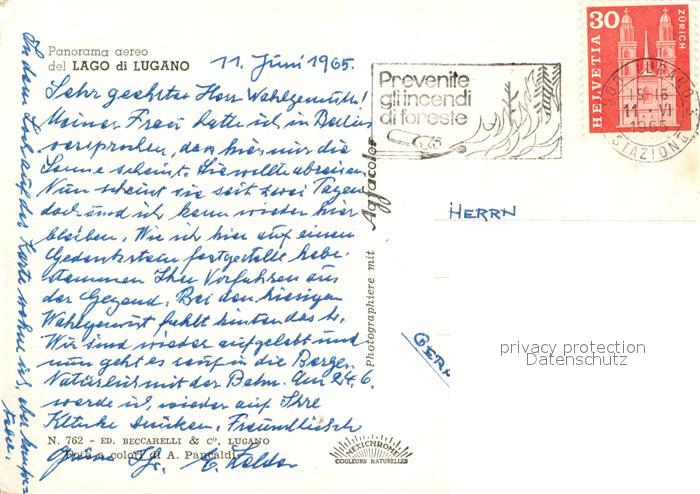 Panorama aereo
del LAGO di LUGANO
11. Juni 1965.
Sehr geehrter Herr Wahlgemuth!
Meiner Frau hatte ich in Berlin
versprochen, dass hier nur die
Sonne scheint. Sie wollte abreisen.
Nun scheint sie seit zwei Tagen
doch und ich kann wieder hier
bleiben. Wie ich hier auf einen
Gedenkstein festgestellt habe
stammen Ihre Vorfahren aus
der Gegend. Bei den hiesigen
fehlt hinten das h.
Wir sind wieder aufgelebt und
nun geht es rauf in die Berge.
Natürlich mit der Bahn. Am 24.6.
werde ich wieder auf Ihre
Klinke drücken. Freundlichst
N. 762 - ED. BECCARELLI & C°, LUGANO
Foto a colori di A. Pancaldi
Ihr
In dem Loch auf der Karte wohne ich, aber
Photographiere mit Agfacolor
MEXICHROME
COULEURS NATURELLES
Prevenite
gli incendi
di foreste
30
HELVETIA
ZÜRICH
15-16
11.-VI
1965
STAZIONE
HERRN
privacy protection
Datenschutz